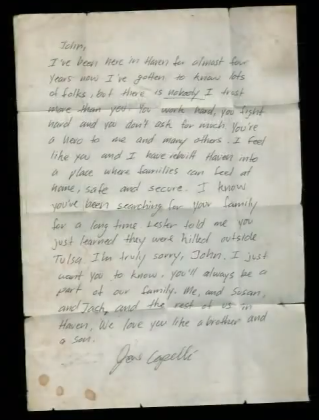 John,
I've been here in Haven for almost four
years now I've gotten to know lots
of folks, but there is nobody I trust
more than you. You work hard, you fight
hard and you don't ask for much. You're
a hero to me and many others. I feel
like you and I have rebuilt Haven into
a place where families can feel at
home, safe and secure. I know
you've been searching for your family
for a long time Lester told me you
just learned they were killed outside
Tulsa. I'm truly sorry, John. I just
want you to know, you'll always be a
part of our family. Me, and Susan,
and Josh, and the rest of us in
Haven, We love you like a brother and
a son.
Capelli